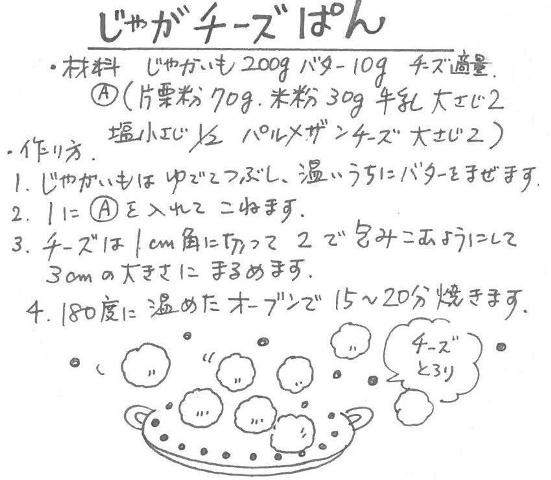 じゃがチーズぱん
・材料 じゃがいも200g バター10g チーズ適量.
Ⓐ(片栗粉70g.米粉30g 牛乳 大さじ2
塩小さじ1/2 パルメザンチーズ 大さじ2)
・作り方.
1. じゃがいもは ゆでてつぶし、温いうちにバターをまぜます.
2. 1にⒶを入れて こねます.
3. チーズは1cm角に切って 2で包みこむようにして
3cmの大きさに まるめます.
4. 180度に温めたオーブンで 15~20分焼きます.
チーズ
とろり